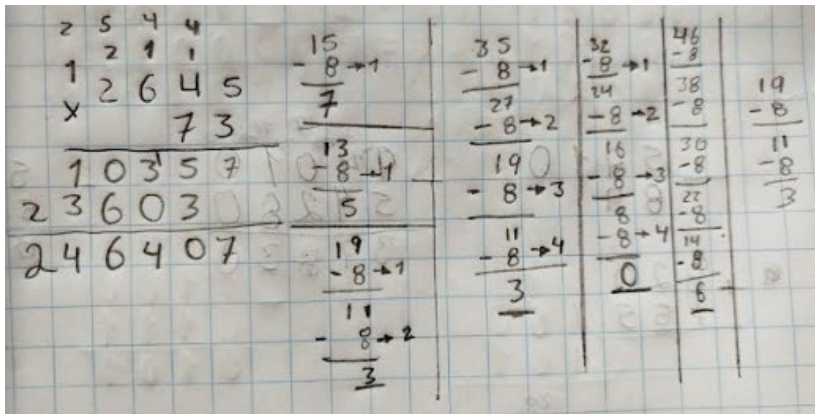 2 5 4 4
2 1 1
1
2 6 4 5
x 7 3
1 0 3 5 7
1
2 3 6 0 3
2 4 6 4 0 7
15
- 8 → 1
7
13
- 8 → 1
5
19
- 8 → 1
11
- 8 → 2
3
35
- 8 → 1
27
- 8 → 2
19
- 8 → 3
11
- 8 → 4
3
32
- 8 → 1
24
- 8 → 2
16
- 8 → 3
8
- 8 → 4
0
46
- 8
38
- 8
30
- 8
22
- 8
14
- 8
6
19
- 8
11
- 8
3